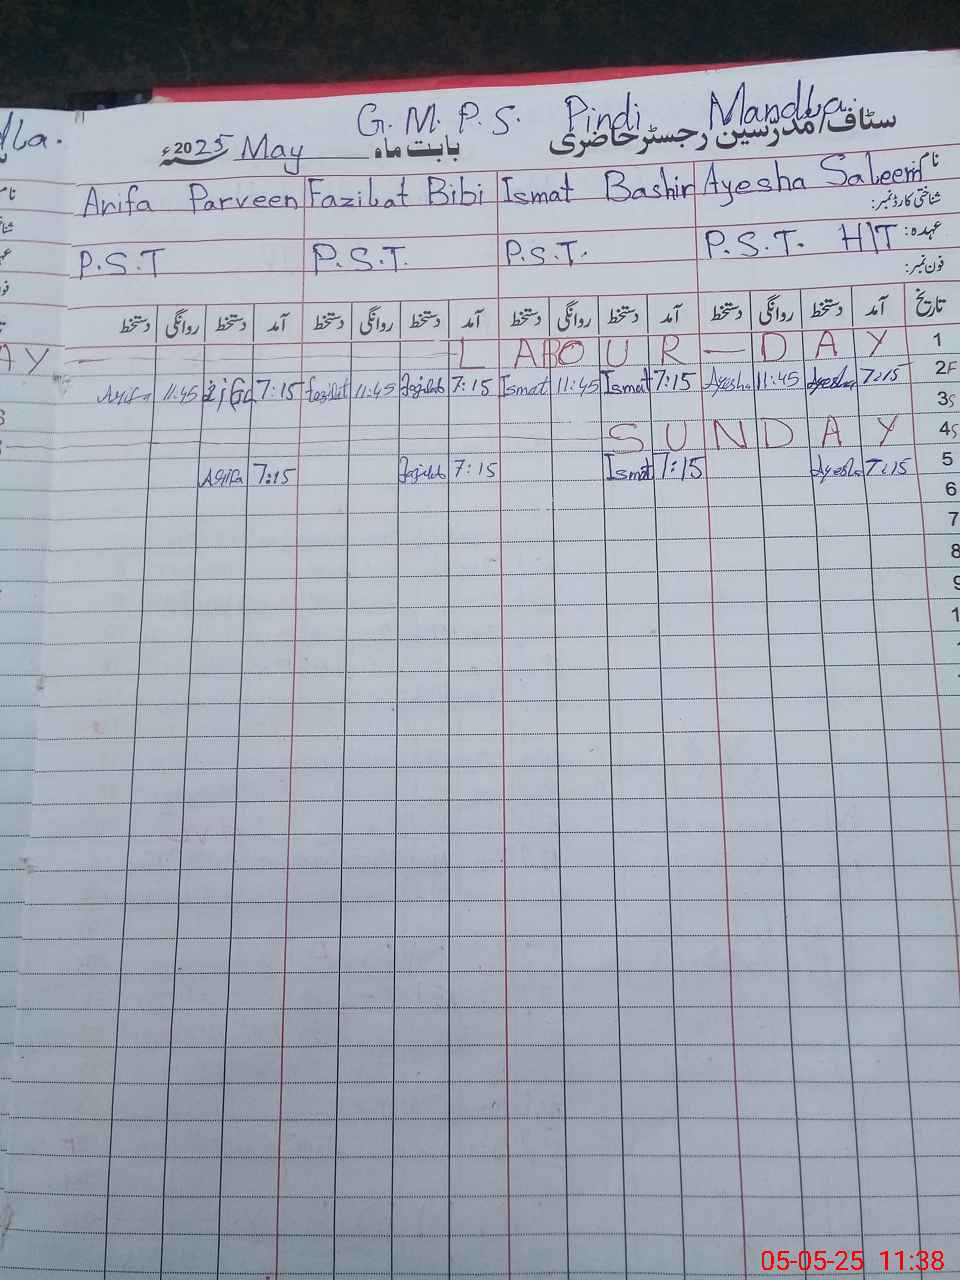 G.M.P.S. Pindi Mandla.
سٹاف/مدرسین رجسٹر حاضری بابت ماہ May 2025ء
نام Ayesha Saleem Ismat Bashir Fazilat Bibi Arifa Parveen
شناختی کارڈ نمبر:
عہدہ: P.S.T. H/T P.S.T. P.S.T. P.S.T
فون نمبر:
تاریخ آمد دستخط روانگی دستخط آمد دستخط روانگی دستخط آمد دستخط روانگی دستخط آمد دستخط روانگی دستخط
1 LABOUR-DAY
2F 7:15 Ayesha 11:45 Ayesha 7:15 Ismat 11:45 Ismat 7:15 Fazilat 11:45 Fazilat 7:15 11:45 Arifa
3S
4S SUNDAY
5 7:15 Ayesha 7:15 Ismat 7:15 Fazilat 7:15 Arifa
6
7
8
05-05-25 11:38